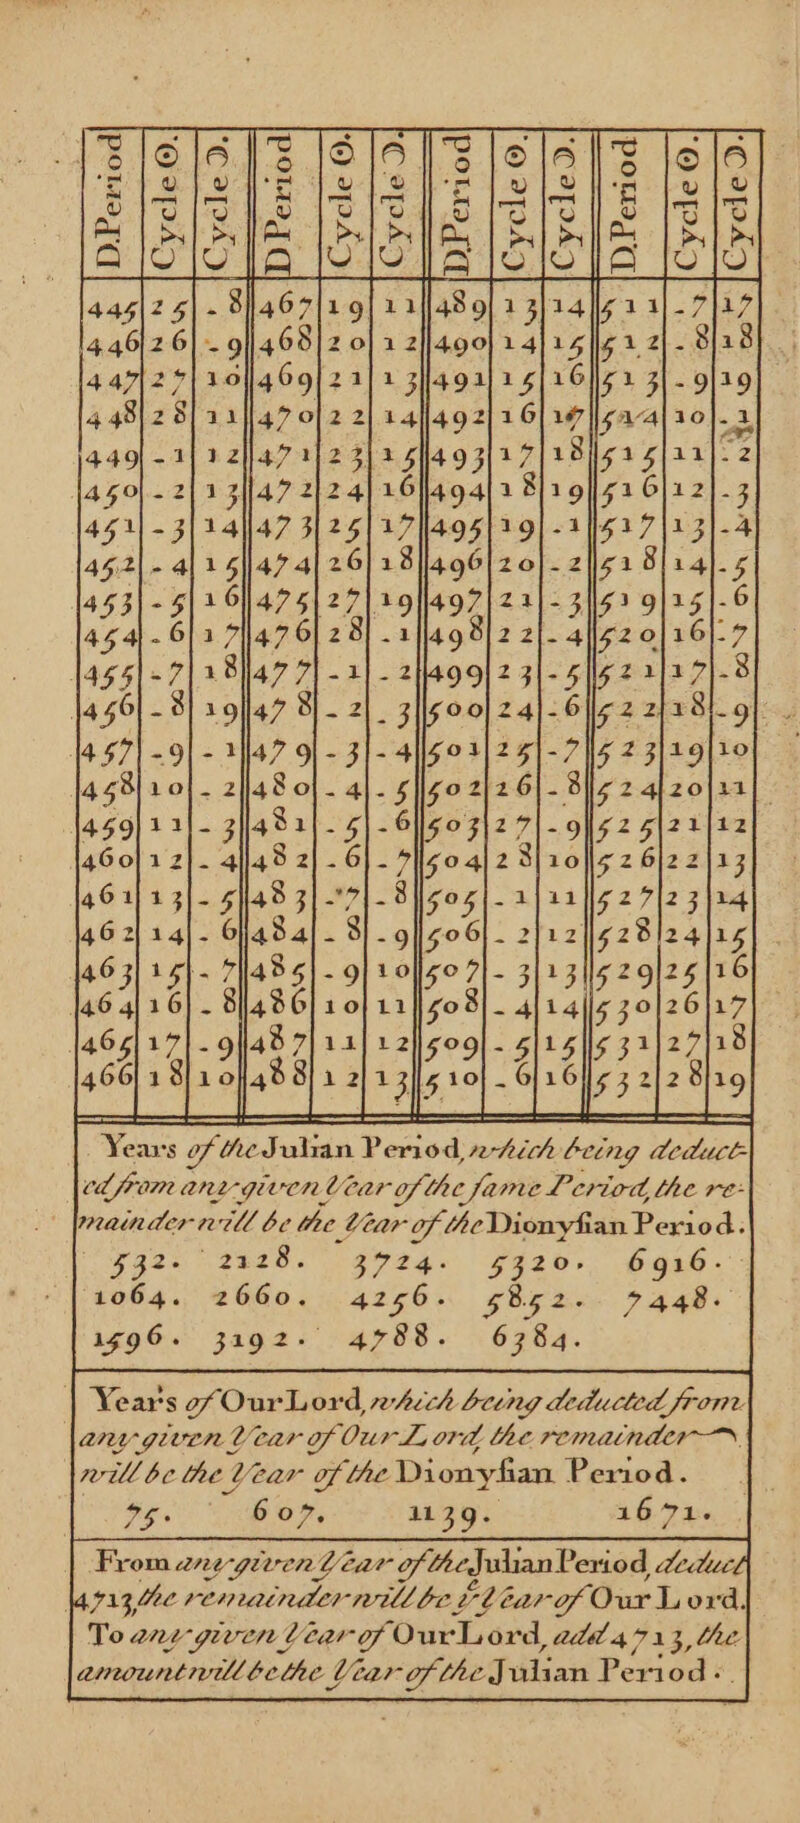 D.Period Cycle ☉. Cycle ☽. D.Period Cycle ☉. Cycle ☽. D.Period Cycle ☉. Cycle ☽. D.Period Cycle ☉. Cycle ☽.
445 25 - 8 467 19 11 489 13 14 511 - 7 17
446 26 - 9 468 20 12 490 14 15 512 - 8 18
447 27 10 469 21 13 491 15 16 513 - 9 19
448 28 11 470 22 14 492 16 17 514 10 - 1
449 - 1 12 471 23 15 493 17 18 515 11 - 2
450 - 2 13 472 24 16 494 18 19 516 12 - 3
451 - 3 14 473 25 17 495 19 - 1 517 13 - 4
452 - 4 15 474 26 18 496 20 - 2 518 14 - 5
453 - 5 16 475 27 19 497 21 - 3 519 15 - 6
454 - 6 17 476 28 - 1 498 22 - 4 520 16 - 7
455 - 7 18 477 - 1 - 2 499 23 - 5 521 17 - 8
456 - 8 19 478 - 2 - 3 500 24 - 6 522 18 - 9
457 - 9 - 1 479 - 3 - 4 501 25 - 7 523 19 10
458 10 - 2 480 - 4 - 5 502 26 - 8 524 20 11
459 11 - 3 481 - 5 - 6 503 27 - 9 525 21 12
460 12 - 4 482 - 6 - 7 504 28 10 526 22 13
461 13 - 5 483 - 7 - 8 505 - 1 11 527 23 14
462 14 - 6 484 - 8 - 9 506 - 2 12 528 24 15
463 15 - 7 485 - 9 10 507 - 3 13 529 25 16
464 16 - 8 486 10 11 508 - 4 14 530 26 17
465 17 - 9 487 11 12 509 - 5 15 531 27 18
466 18 10 488 12 13 510 - 6 16 532 28 19
Years of the Julian Period, which being deduct-
ed from any given Year of the ſame Period, the re-
mainder will be the Year of the Dionyſian Period.
532. 2128. 3724. 5320. 6916.
1064. 2660. 4256. 5852. 7448.
1596. 3192. 4788. 6384.
Years of Our Lord, which being deducted from
any given Year of Our Lord, the remainder
will be the Year of the Dionyſian Period.
75. 607. 1139. 1671.
From any given Year of the Julian Period, deduct
4713, the remainder will be yͤ Year of Our Lord.
To any given Year of Our Lord, add 4713, the
amount will be the Year of the Julian Period.